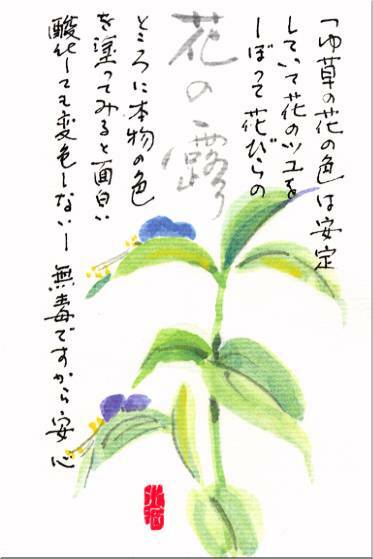 つゆ草の花の色は安定
していて花のツユを
しぼって花びらの
花の露
ところに本物の色
を塗ってみると面白い
酸化しても変色しないし 無毒ですから安心